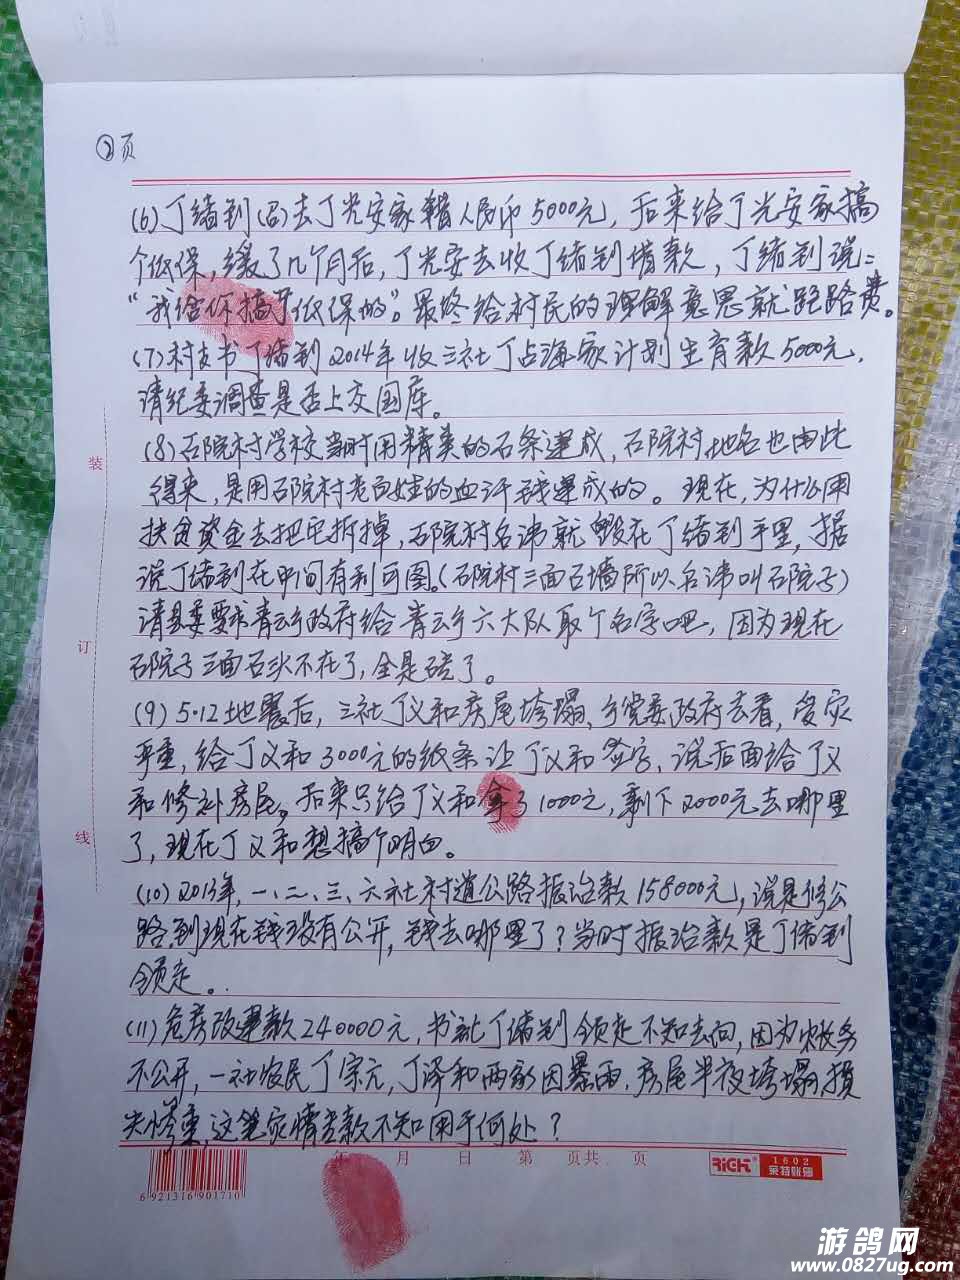 ②页
(6)丁绪到(曾)去丁光安家借人民币5000元，后来给丁光安家搞
个低保，缓了几个月后，丁光安去收丁绪到借款，丁绪到说：
“我给你搞了低保的”。最终给村民的理解意思就跑路费。
(7)村支书丁绪到2014年收三社丁占海家计划生育款5000元，
请纪委调查是否上交国库。
(8)石院村学校当时用精美的石条建成，石院村地名也由此
得来，是用石院村老百姓的血汗钱建成的。现在，为什么用
扶贫资金去把它拆掉，石院村名讳就毁在丁绪到手里，据
说丁绪到在中间有利可图。(石院村三面石墙所以名讳叫石院子)
请县委要求青云乡政府给青云乡六大队取个名字吧，因为现在
石院子三面石头不在了，全是砖了。
(9)5·12地震后，三社丁义和房屋垮塌，乡党委政府去看，受灾
严重，给丁义和3000元的纸条让丁义和签字，说后面给丁义
和修补房屋。后来只给丁义和拿了1000元，剩下2000元去哪里
了，现在丁义和想搞个明白。
(10)2013年，一、二、三、六社村道公路振治款158000元，说是修公
路，到现在钱没有公开，钱去哪里了？当时振治款是丁绪到
领走。
(11)危房改建款240000元，书记丁绪到领走不知去向，因为财务
不公开，一社农民丁宗元，丁泽和两家因暴雨，房屋半夜垮塌，损
失惨重，这笔灾情款不知用于何处？
装
订
线
年 月 日 第 页共 页
6 921316 901710
RiCH
1602
莱特账册
游鸽网
www.0827ug.com